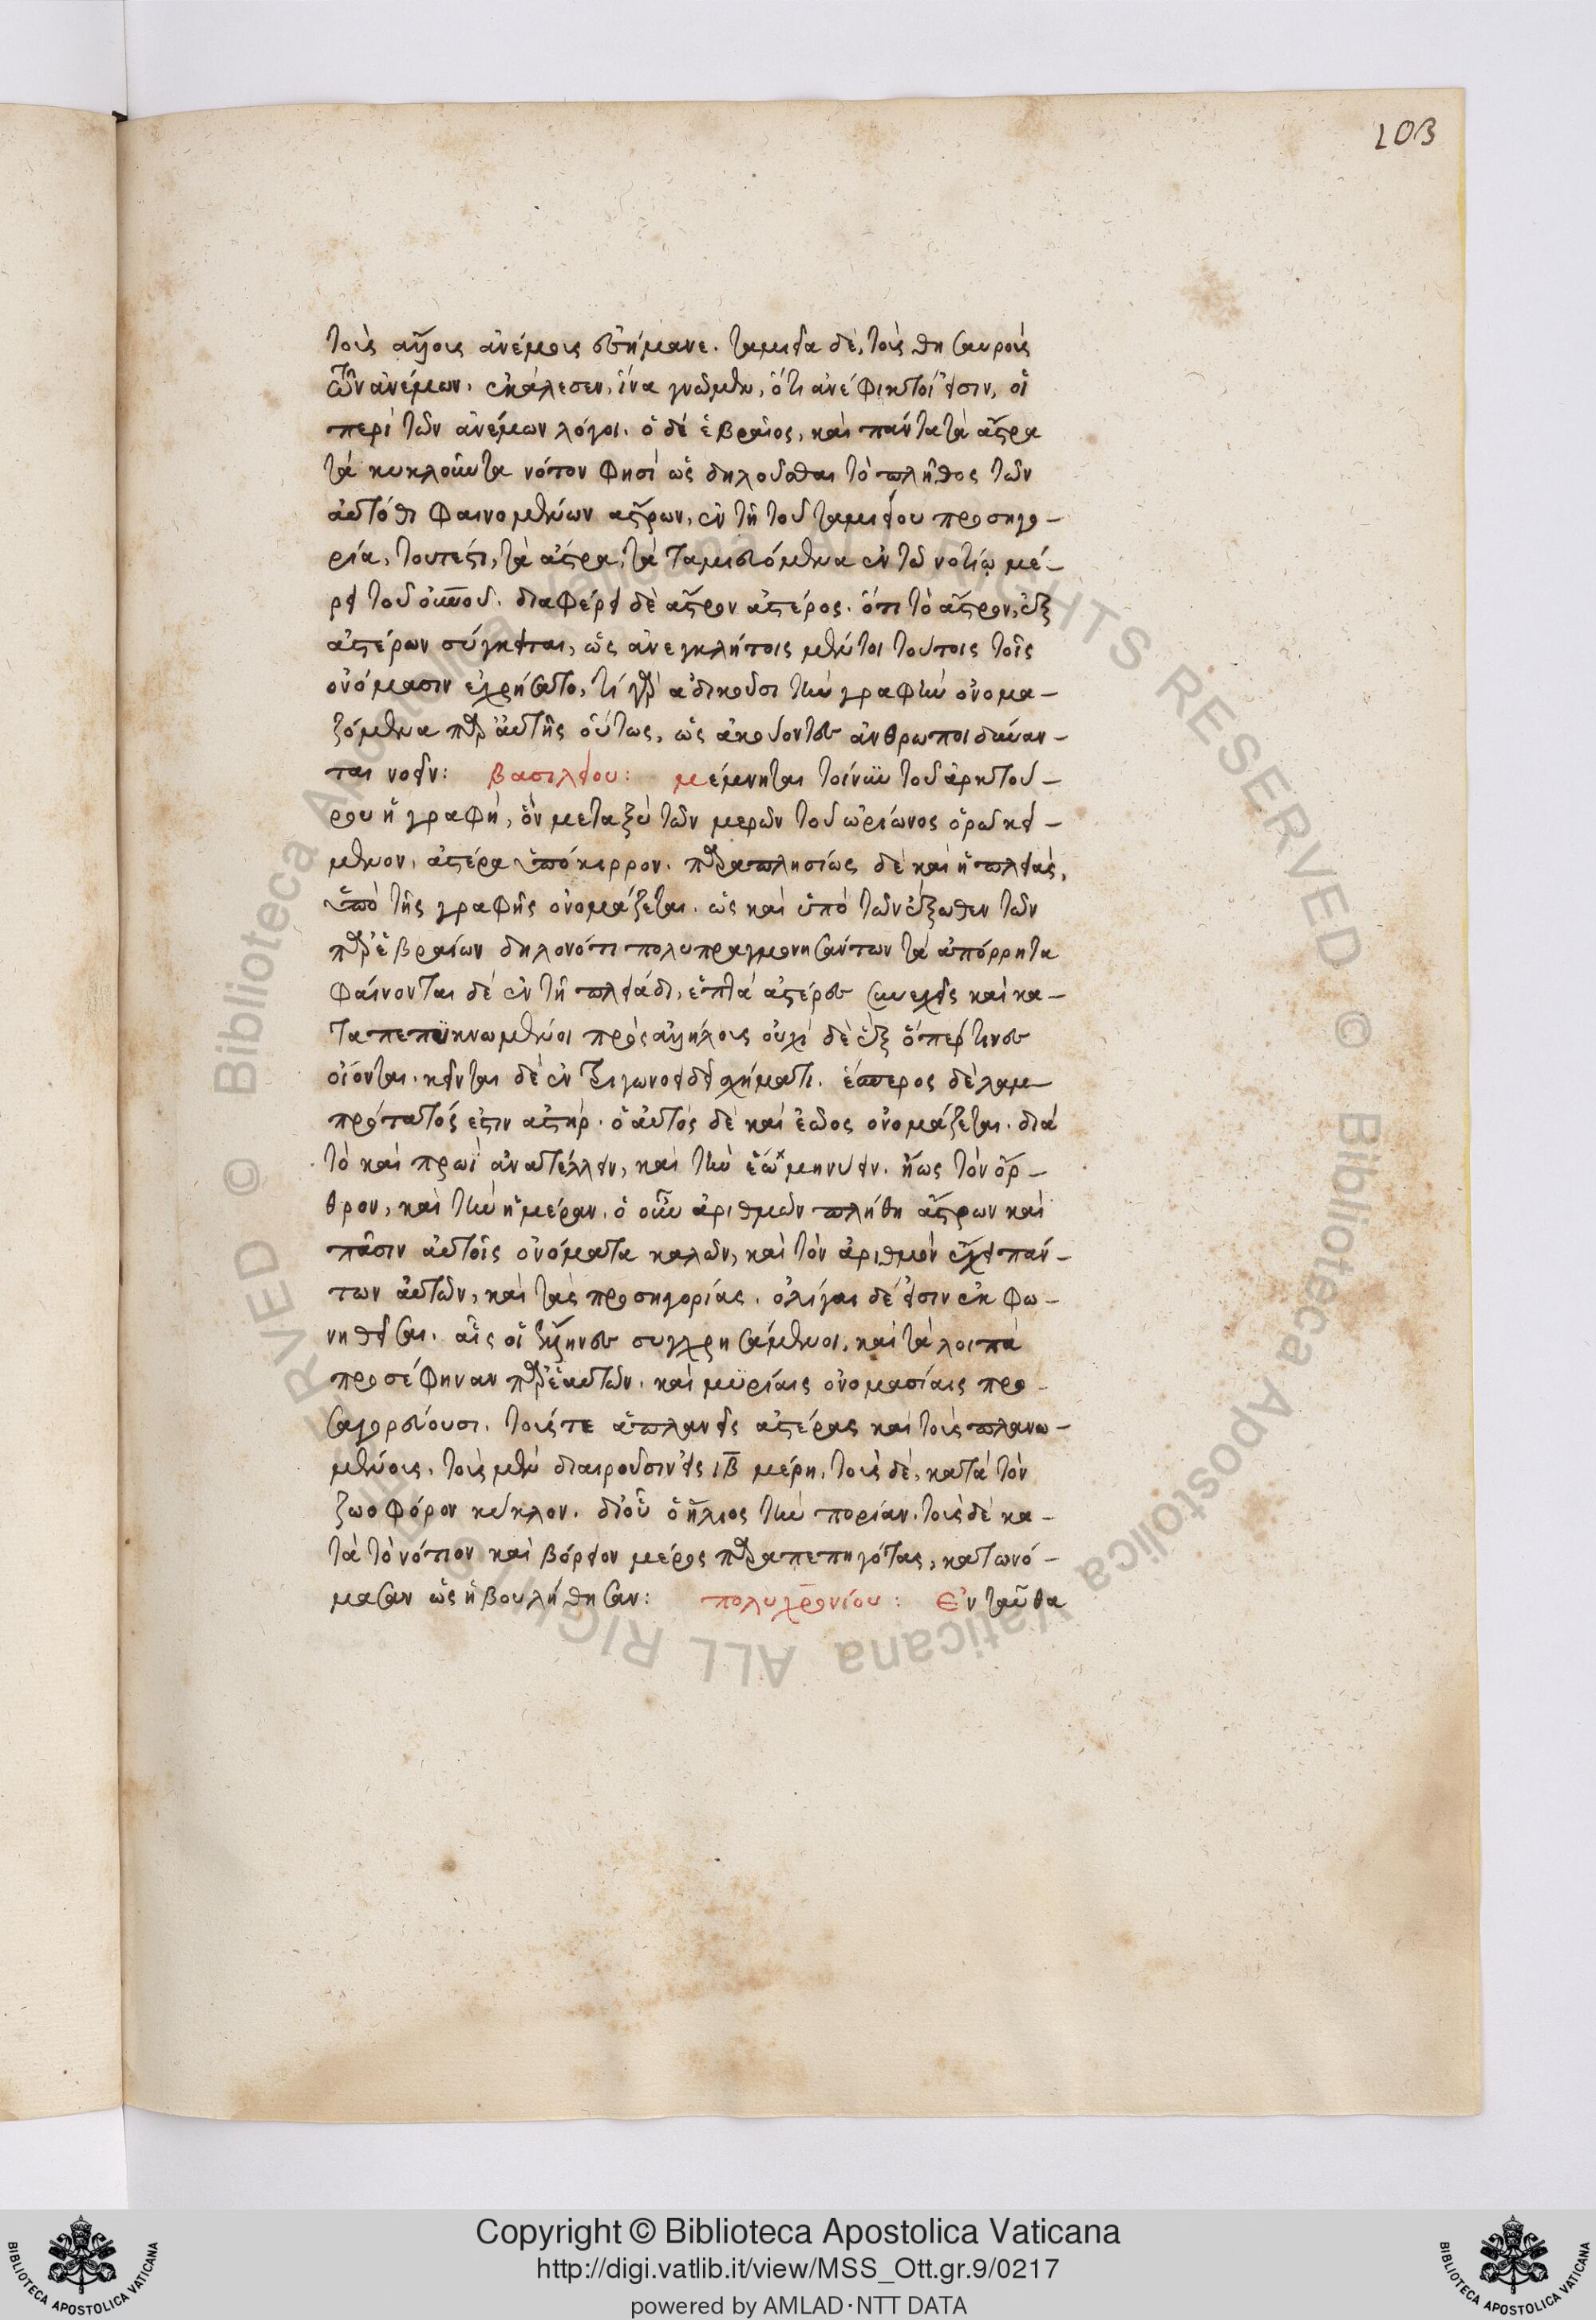 103
τοὺς ἄλλους ἀνέμους ἐσήμανε. ταμεῖα δὲ, τοὺς θησαυροὺς
τῶν ἀνέμων. ἐκάλεσεν, ἵνα γνῶμεν, ὅτι ἀνέφικτοί εἰσιν, οἱ
περὶ τῶν ἀνέμων λόγοι. ὁ δὲ ἑβραῖος, καὶ πάντα τὰ ἄστρα
τὰ κυκλοῦντα νότον φησὶ ὡς δηλοῦσθαι τὸ πλῆθος τῶν
αὐτόθι φαινομένων ἄστρων, ἐν τῇ τοῦ ταμείου προσηγο-
ρία, τουτέστι, τὰ ἄστρα, τὰ ταμιευόμενα ἐν τῷ νοτίῳ μέ-
ρει τοῦ οὐνοῦ. διαφέρει δὲ ἄστρον ἀστέρος. ὅτι τὸ ἄστρον, ἐξ
ἀστέρων σύγκειται, ὡς ἀνεγκλήτοις μέντοι τούτοις τοῖς
ὀνόμασιν ἐχρήσατο, τί γὰρ ἀδικοῦσι τὴν γραφὴν ὀνομα-
ζόμενα παρ' αὐτῆς οὕτως, ὡς ἀκούοντες ἄνθρωποι δύναν-
ται νοεῖν: βασιλείου: μέμνηται τοίνυν τοῦ ἀρκτού-
ρου ἡ γραφὴ, ὃν μεταξὺ τῶν μερῶν τοῦ ὠρίωνος ὁρῶ κεί-
μενον, ἀστέρα ὑπόκερρον. παραπλησίως δὲ καὶ ἡ πλειὰς,
ὑπὸ τῆς γραφῆς ὀνομάζεται. ὡς καὶ ὑπὸ τῶν ἔξωθεν τῶν
παρ' ἑβραίων δηλονότι πολυπραγμονησάντων τὰ ἀπόρρητα
φαίνονται δὲ ἐν τῇ πλειάδι, ἑπτὰ ἀστέρες συνεχεῖς καὶ κα-
ταπεπυκνωμένοι πρὸς ἀλλήλους οὐχὶ δὲ ἐξ ὅπερ τινες
οἴονται. κεῖνται δὲ ἐν τριγωνοειδεῖ σχήματι. ἕσπερος δὲ λαμ-
πρότατός ἐστιν ἀστὴρ. ὁ αὐτὸς δὲ καὶ ἑῶος ὀνομάζεται. διὰ
τὸ καὶ πρωῒ ἀνατέλλειν, καὶ τὴν ἕω μηνύειν. ἤως τὸν ὄρ-
θρον, καὶ τὴν ἡμέραν. ὁ οὖν ἀριθμῶν πλήθη ἄστρων καὶ
πᾶσιν αὐτοῖς ὀνόματα καλῶν, καὶ τὸν ἀριθμὸν ἔχει πάν-
των αὐτῶν, καὶ τὰς προσηγορίας. ὀλίγαι δέ εἰσιν ἐκφω-
νηθεῖσαι. αἷς οἱ ἕλληνες συγχρησάμενοι, καὶ τὰ λοιπὰ
προσέφηναν παρ' ἑαυτῶν. καὶ μυρίαις ὀνομασίαις προ-
σαγορεύουσι. τούς τε ἀπλανεῖς ἀστέρας καὶ τοὺς πλανω-
μένους. τοὺς μὲν διαιροῦσιν εἰς ιβ μέρη, τοὺς δὲ, κατὰ τὸν
ζωοφόρον κύκλον. δι' οὗ ὁ ἥλιος τὴν πορείαν. τοὺς δὲ κα-
τὰ τὸ νότιον καὶ βόρειον μέρος παραπεπηγότας, κατωνό-
μασαν ὡς ἠβουλήθησαν: πολυχρονίου: Ἐνταῦθα
© Biblioteca Apostolica Vaticana ALL RIGHTS RESERVED © Biblioteca Apostolica Vaticana ALL RIGHTS RESERVED
Copyright © Biblioteca Apostolica Vaticana
http://digi.vatlib.it/view/MSS_Ott.gr.9/0217
powered by AMLAD·NTT DATA
BIBLIOTECA APOSTOLICA VATICANA
BIBLIOTECA APOSTOLICA VATICANA